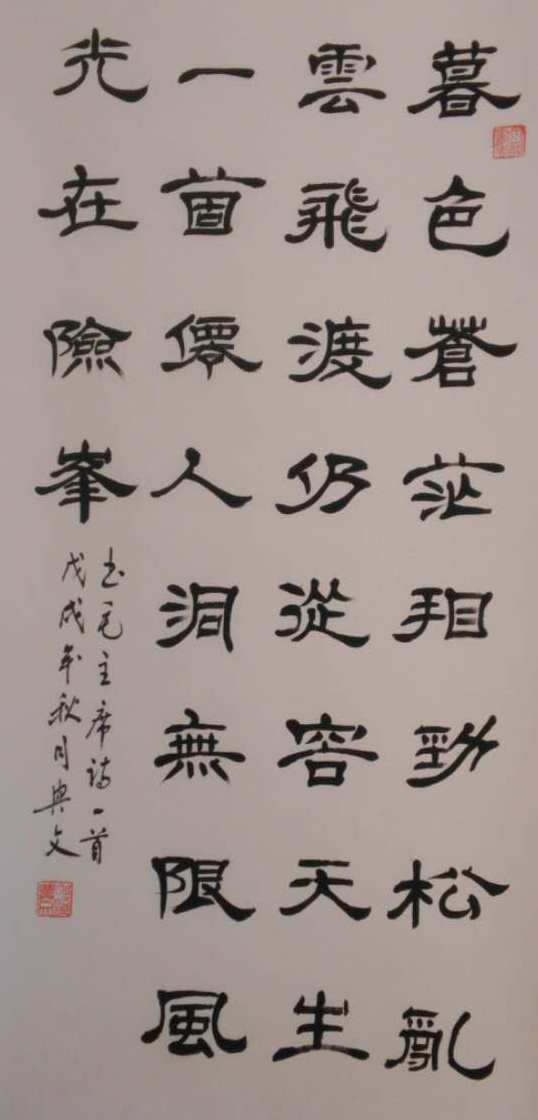 暮色蒼茫看勁松亂
雲飛渡仍從容天生
一箇僊人洞無限風
光在險峯
书毛主席诗一首
戊戌年秋月典文